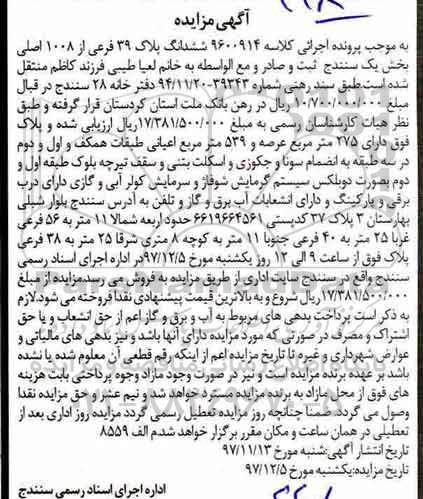 آگهی مزایده
به موجب پرونده اجرائی کلاسه ۹۶۰۰۹۱۴ ششدانگ پلاک ۳۹ فرعی از ۱۰۰۸ اصلی
بخش یک سنندج ثبت و صادر و مع الواسطه به خانم لعیا طیبی فرزند کاظم منتقل
شده است.طبق سند رهنی شماره ۳۹۳۴۳-۹۴/۱۱/۲۰ دفتر خانه ۲۸ سنندج در قبال
مبلغ ۱۰/۷۰۰/۰۰۰/۰۰۰ ریال در رهن بانک ملت استان کردستان قرار گرفته و طبق
نظر هیات کارشناسان رسمی به مبلغ ۱۷/۳۸۱/۵۰۰/۰۰۰ریال ارزیابی شده و پلاک
فوق دارای ۲۷۵ متر مربع عرصه و ۵۳۹ متر مربع اعیانی طبقات همکف و اول و دوم
در سه طبقه به انضمام سونا و جکوزی و اسکلت بتنی و سقف تیرچه بلوک طبقه اول و
دوم بصورت دوبلکس سیستم گرمایش شوفاژ و سرمایش کولر آبی و گازی دارای درب
برقی و پارکینگ و دارای انشعابات آب برق و گاز و تلفن به آدرس سنندج بلوار شبلی
بهارستان ۲ پلاک ۳۷ کدپستی ۶۶۱۹۶۶۴۵۶۱ حدود اربعه شمالا ۱۱ متر به ۵۶ فرعی
غربا ۲۵ متر به ۴۰ فرعی جنوبا ۱۱ متر به کوچه ۸ متری شرقا ۲۵ متر به ۳۸ فرعی
پلاک فوق از ساعت ۹ الی ۱۲ روز یکشنبه مورخ ۹۷/۱۲/۵در اداره اجرای اسناد رسمی
سنندج واقع در سنندج سایت اداری از طریق مزایده به فروش می رسد.مزایده از مبلغ
۱۷/۳۸۱/۵۰۰/۰۰۰ریال شروع و به بالاترین قیمت پیشنهادی نقدا فروخته می شود.لازم
به ذکر است پرداخت بدهی های مربوط به آب و برق و گاز اعم از حق انشعاب و یا حق
اشتراک و مصرف در صورتی که مورد مزایده دارای آنها باشد و نیز بدهی های مالیاتی و
عوارض شهرداری و غیره تا تاریخ مزایده اعم از اینکه رقم قطعی آن معلوم شده یا نشده
باشد بر عهده برنده مزایده است و نیز در صورت وجود مازاد وجوه پرداختی بابت هزینه
های فوق از محل مازاد به برنده مزایده مسترد خواهد شد و نیم عشر و حق مزایده نقدا
وصول می گردد.ضمنا چنانچه روز مزایده تعطیل رسمی گردد مزایده روز اداری بعد از
تعطیلی در همان ساعت و مکان مقرر برگزار خواهد شد.م الف ۸۵۵۹
تاریخ انتشار آگهی:شنبه مورخ ۹۷/۱۱/۱۳
تاریخ مزایده:یکشنبه مورخ ۹۷/۱۲/۵
اداره اجرای اسناد رسمی سنندج